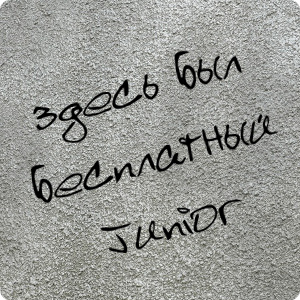 здесь был
бесплатный
junior